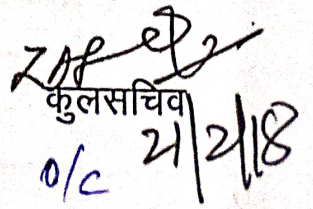 कुलसचिव
21/2/18
O/C